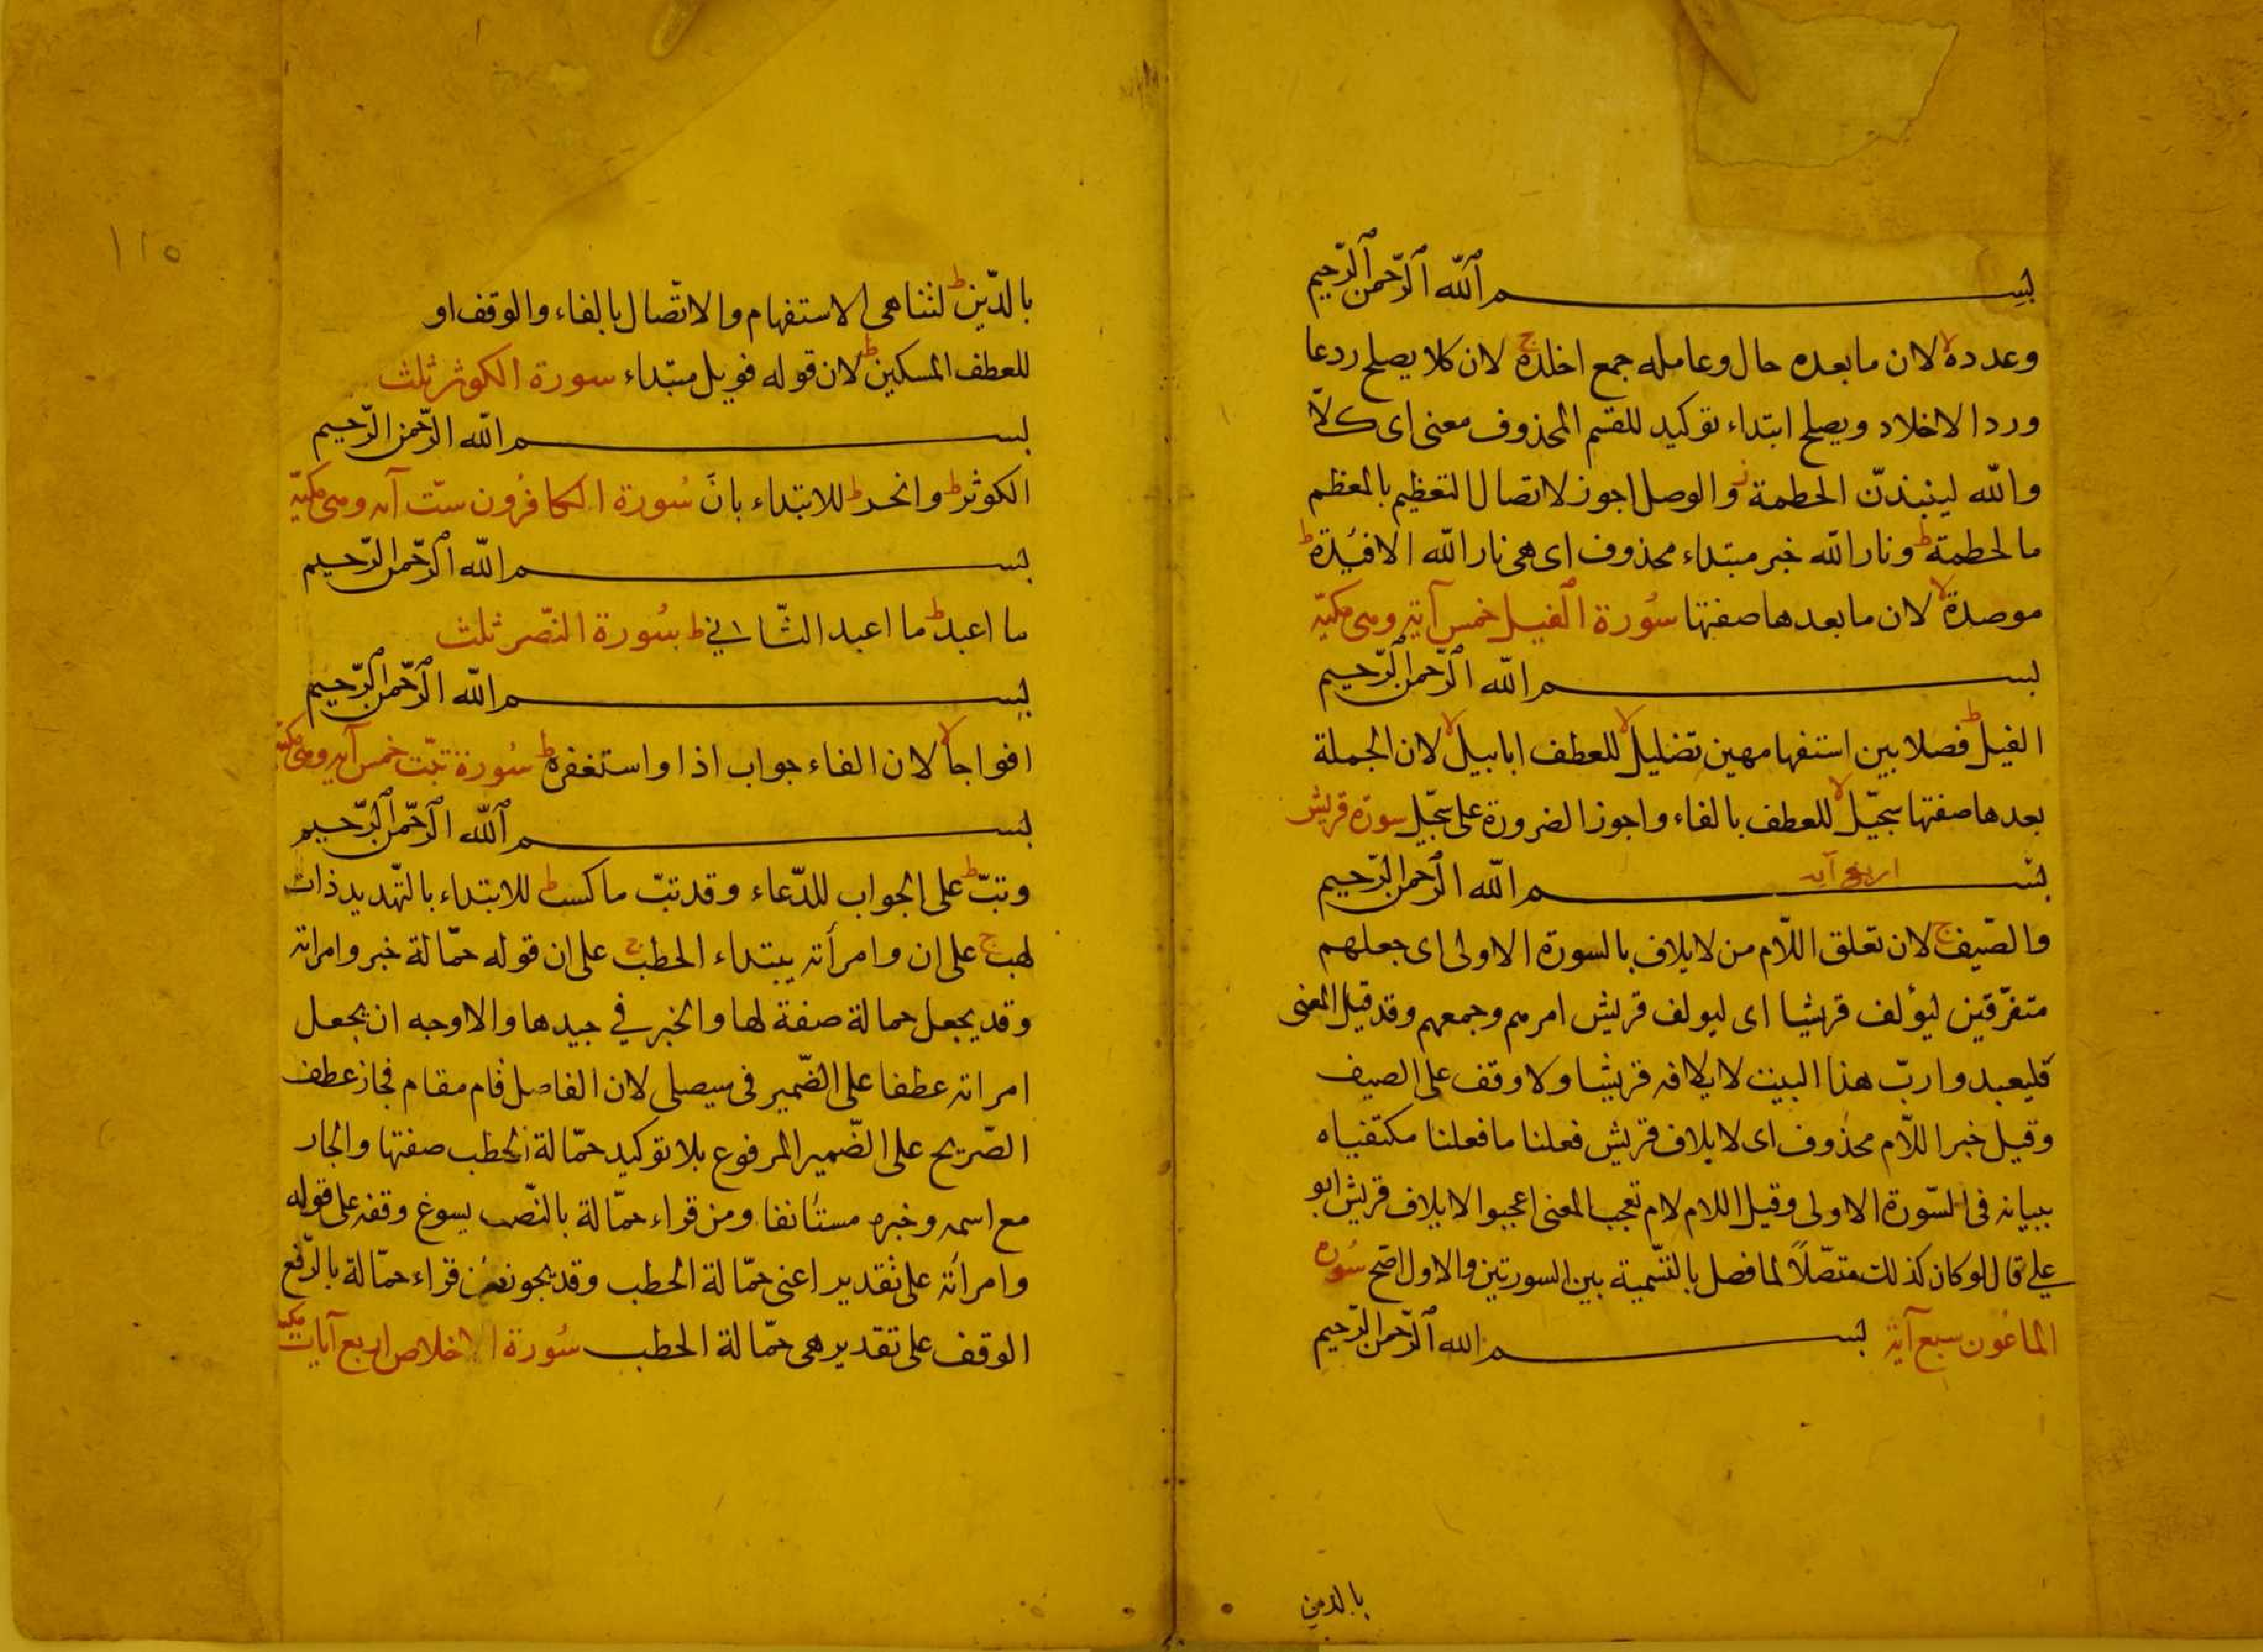 بسم الله الرحمن الرحيم
وعدده لا لان ما بعده حال وعامله جمع اخلده ج لان كلا يصلح ردعا
وردا لاخلاد ويصلح ابتداء توكيد للقسم المحذوف معنى اى كلّا
والله لينبذنّ الحطمة ز والوصل اجوز لاتصال التعظيم بالمعظم
ما لحطمة ط ونار الله خبر مبتداء محذوف اى هى نار الله الافئدة ط
موصدة لا لان ما بعدها صفتها سُورة الفيل خمس آية وهى مكيّة
بسم الله الرحمن الرحيم
الفيل ط فصلا بين استفهامهين تضليل لا للعطف ابابيل لا لان الجملة
بعدها صفتها سجّيل لا للعطف بالفاء واجوز الضرورة على سجّيل سورة قريش
اربع آية
بسم الله الرحمن الرحيم
والصّيف ج لان تعلق اللّام من لايلاف بالسورة الاولى اى جعلهم
متفرّقين ليؤلف قريشا اى ليولف قريش امرهم وجمعهم وقد قيل المعنى
فليعبدوا ربّ هذا البيت لايلافه قريشا ولا وقف على الصيف
وقيل خبر اللّام محذوف اى لايلاف قريش فعلنا ما فعلنا مكتفياه
ببيانه فى السّورة الاولى وقيل اللام لام تعجب المعنى اعجبوا لايلاف قريش ابو
على قال لو كان كذلك متصّلاً لما فصل بالتّسمية بين السورتين والاول اصّح سُوره
الماعُون سبع آية بسم الله الرحمن الرحيم
بالدين
١١٥
بالدّين ط لتناهى الاستفهام والاتّصال بالفاء والوقف او
للعطف المسكين ط لان قوله فويل مبتداء سورة الكوثر ثلث
بسم الله الرحمن الرحيم
الكوثر ط وانحر ط للابتداء بانّ سُورة الكافرُون ستّ آيه وهى مكيّة
بسم الله الرحمن الرحيم
ما اعبد ط ما اعبد الثّانى ط سُورة النّصر ثلث
بسم الله الرحمن الرحيم
افواجا لا لان الفاء جواب اذا واستغفره ط سُورة تبّت خمس آيه وهى مكيّة
بسم الله الرحمن الرحيم
وتبّ ط على الجواب للدّعاء وقد تبّ ما كسب ط للابتداء بالتّهديد ذات
لهب ج على ان وامرأته يبتداء الحطب ج على ان قوله حمّالة خبر وامراته
وقد يجعل حمالة صفة لها والخبر في جيدها والاوجه ان يجعل
امراته عطفا على الضّمير فى سيصلى لان الفاصل قام مقام فجاز عطف
الصّريح على الضّمير المرفوع بلا توكيد حمّالة الحطب صفتها والجار
مع اسمه وخبره مستأنفا ومن قراء حمّالة بالنّصب يسوغ وقفه على قوله
وامرأته على تقدير اعنى حمّالة الحطب وقد يجوز لمن قراء حمّالة بالرّفع
الوقف على تقدير هى حمّالة الحطب سُورة الاخلاص اربع آيات مكية